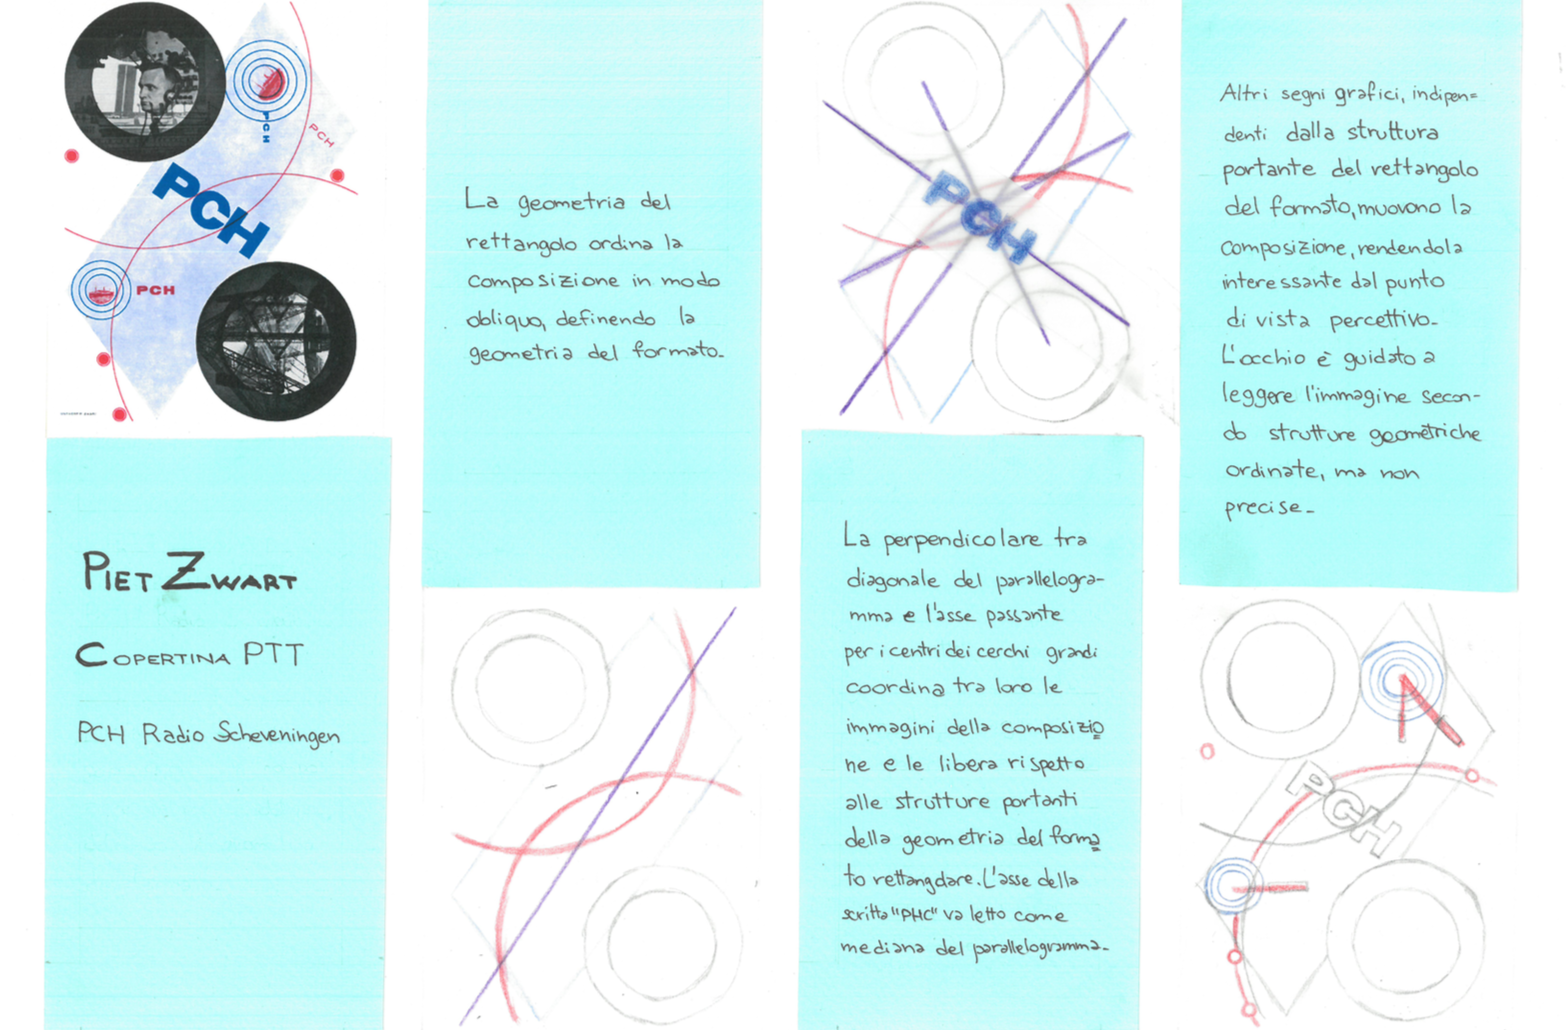 PCH
PCH
PCH
PCH
PIET ZWART
COPERTINA PTT
PCH Radio Scheveningen
La geometria del
rettangolo ordina la
composizione in modo
obliquo, definendo la
geometria del formato.
PCH
La perpendicolare tra
diagonale del parallelogra-
mma e l'asse passante
per i centri dei cerchi grandi
coordina tra loro le
immagini della composizio
ne e le libera rispetto
alle strutture portanti
della geometria del forma
to rettangolare. L'asse della
scritta "PHC" va letto come
mediana del parallelogramma.
Altri segni grafici, indipen=
denti dalla struttura
portante del rettangolo
del formato, muovono la
composizione, rendendola
interessante dal punto
di vista percettivo.
L'occhio è guidato a
leggere l'immagine secon-
do strutture geometriche
ordinate, ma non
precise.
PCH